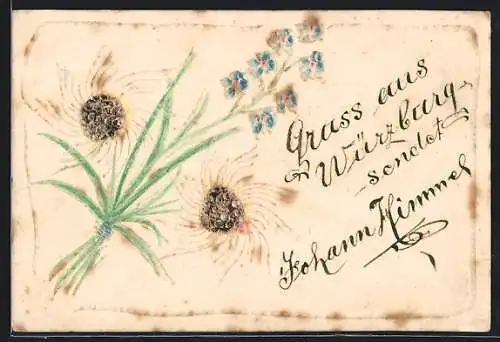 Gruss aus
Würzburg
sendet
Johann Himmel